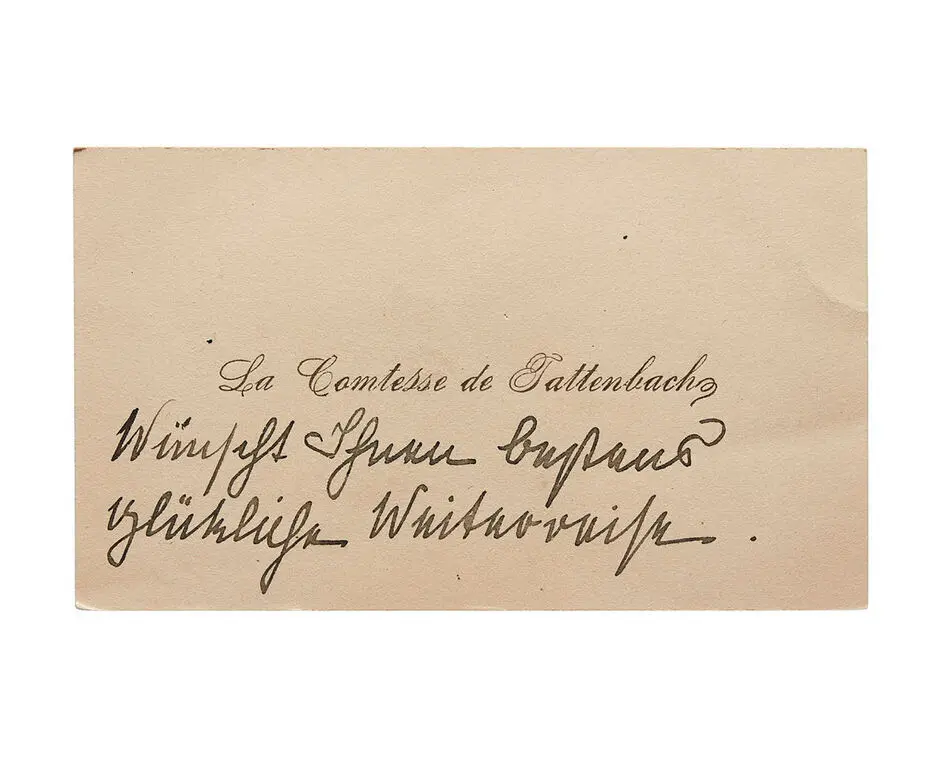 La Comtesse de Tattenbach
Wünscht Ihnen bestens
glückliche Weiterreise.